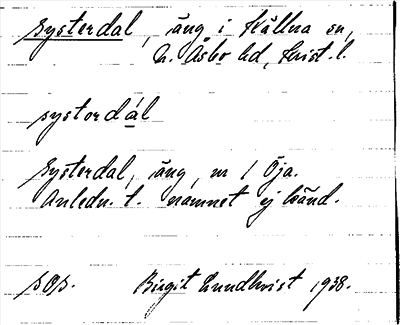 Systerdal, äng i Källna sn,
N. Åsbo hd, Krist. l.
systordál
Systerdal, äng, nr 1 Öja.
Anledn. t. namnet ej känd.
SOS. Birgit Lundkvist 1938.